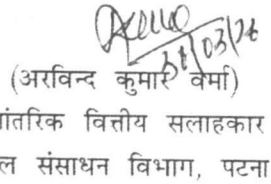 31/03/26
(अरविन्द कुमार वर्मा)
ांतरिक वित्तीय सलाहकार
ल संसाधन विभाग, पटना